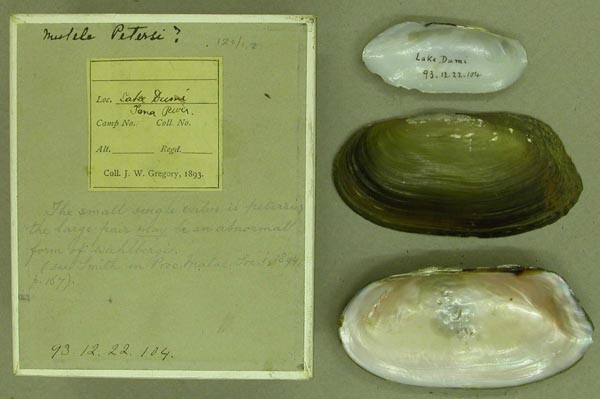 Mutela Petersi ?
Loc. Lake Dumi
Tana River.
Camp No. Coll. No.
Alt. Regd.
Coll. J. W. Gregory, 1893.
The small single valve is petersi,
the large pair may be an abnormal
form of
(see Smith in Proc. Malac. Soc. 1, 1894,
p. 167).
93.12.22.104.
Lake Dumi
93.12.22.104